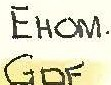 EHOM.
GDF